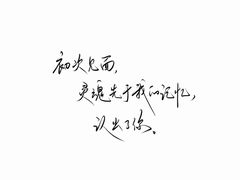 初次见面，
灵魂先于我的记忆，
认出了你。